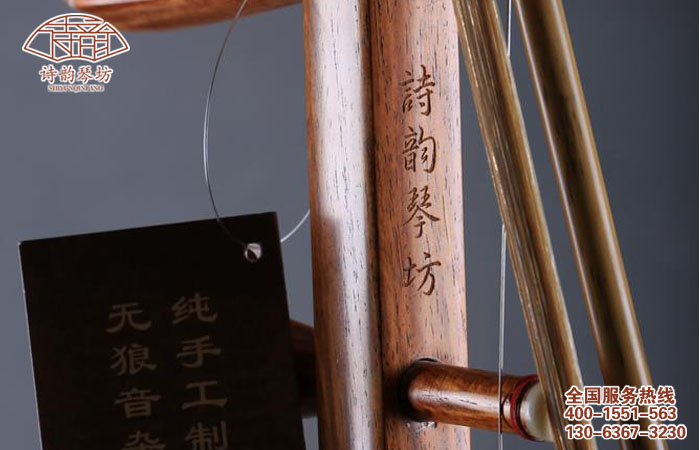 诗韵琴坊
SHIYUNQINFANG
詩韵琴坊
纯手工制
无狼音杂
全国服务热线
400-1551-563
130-6367-3230